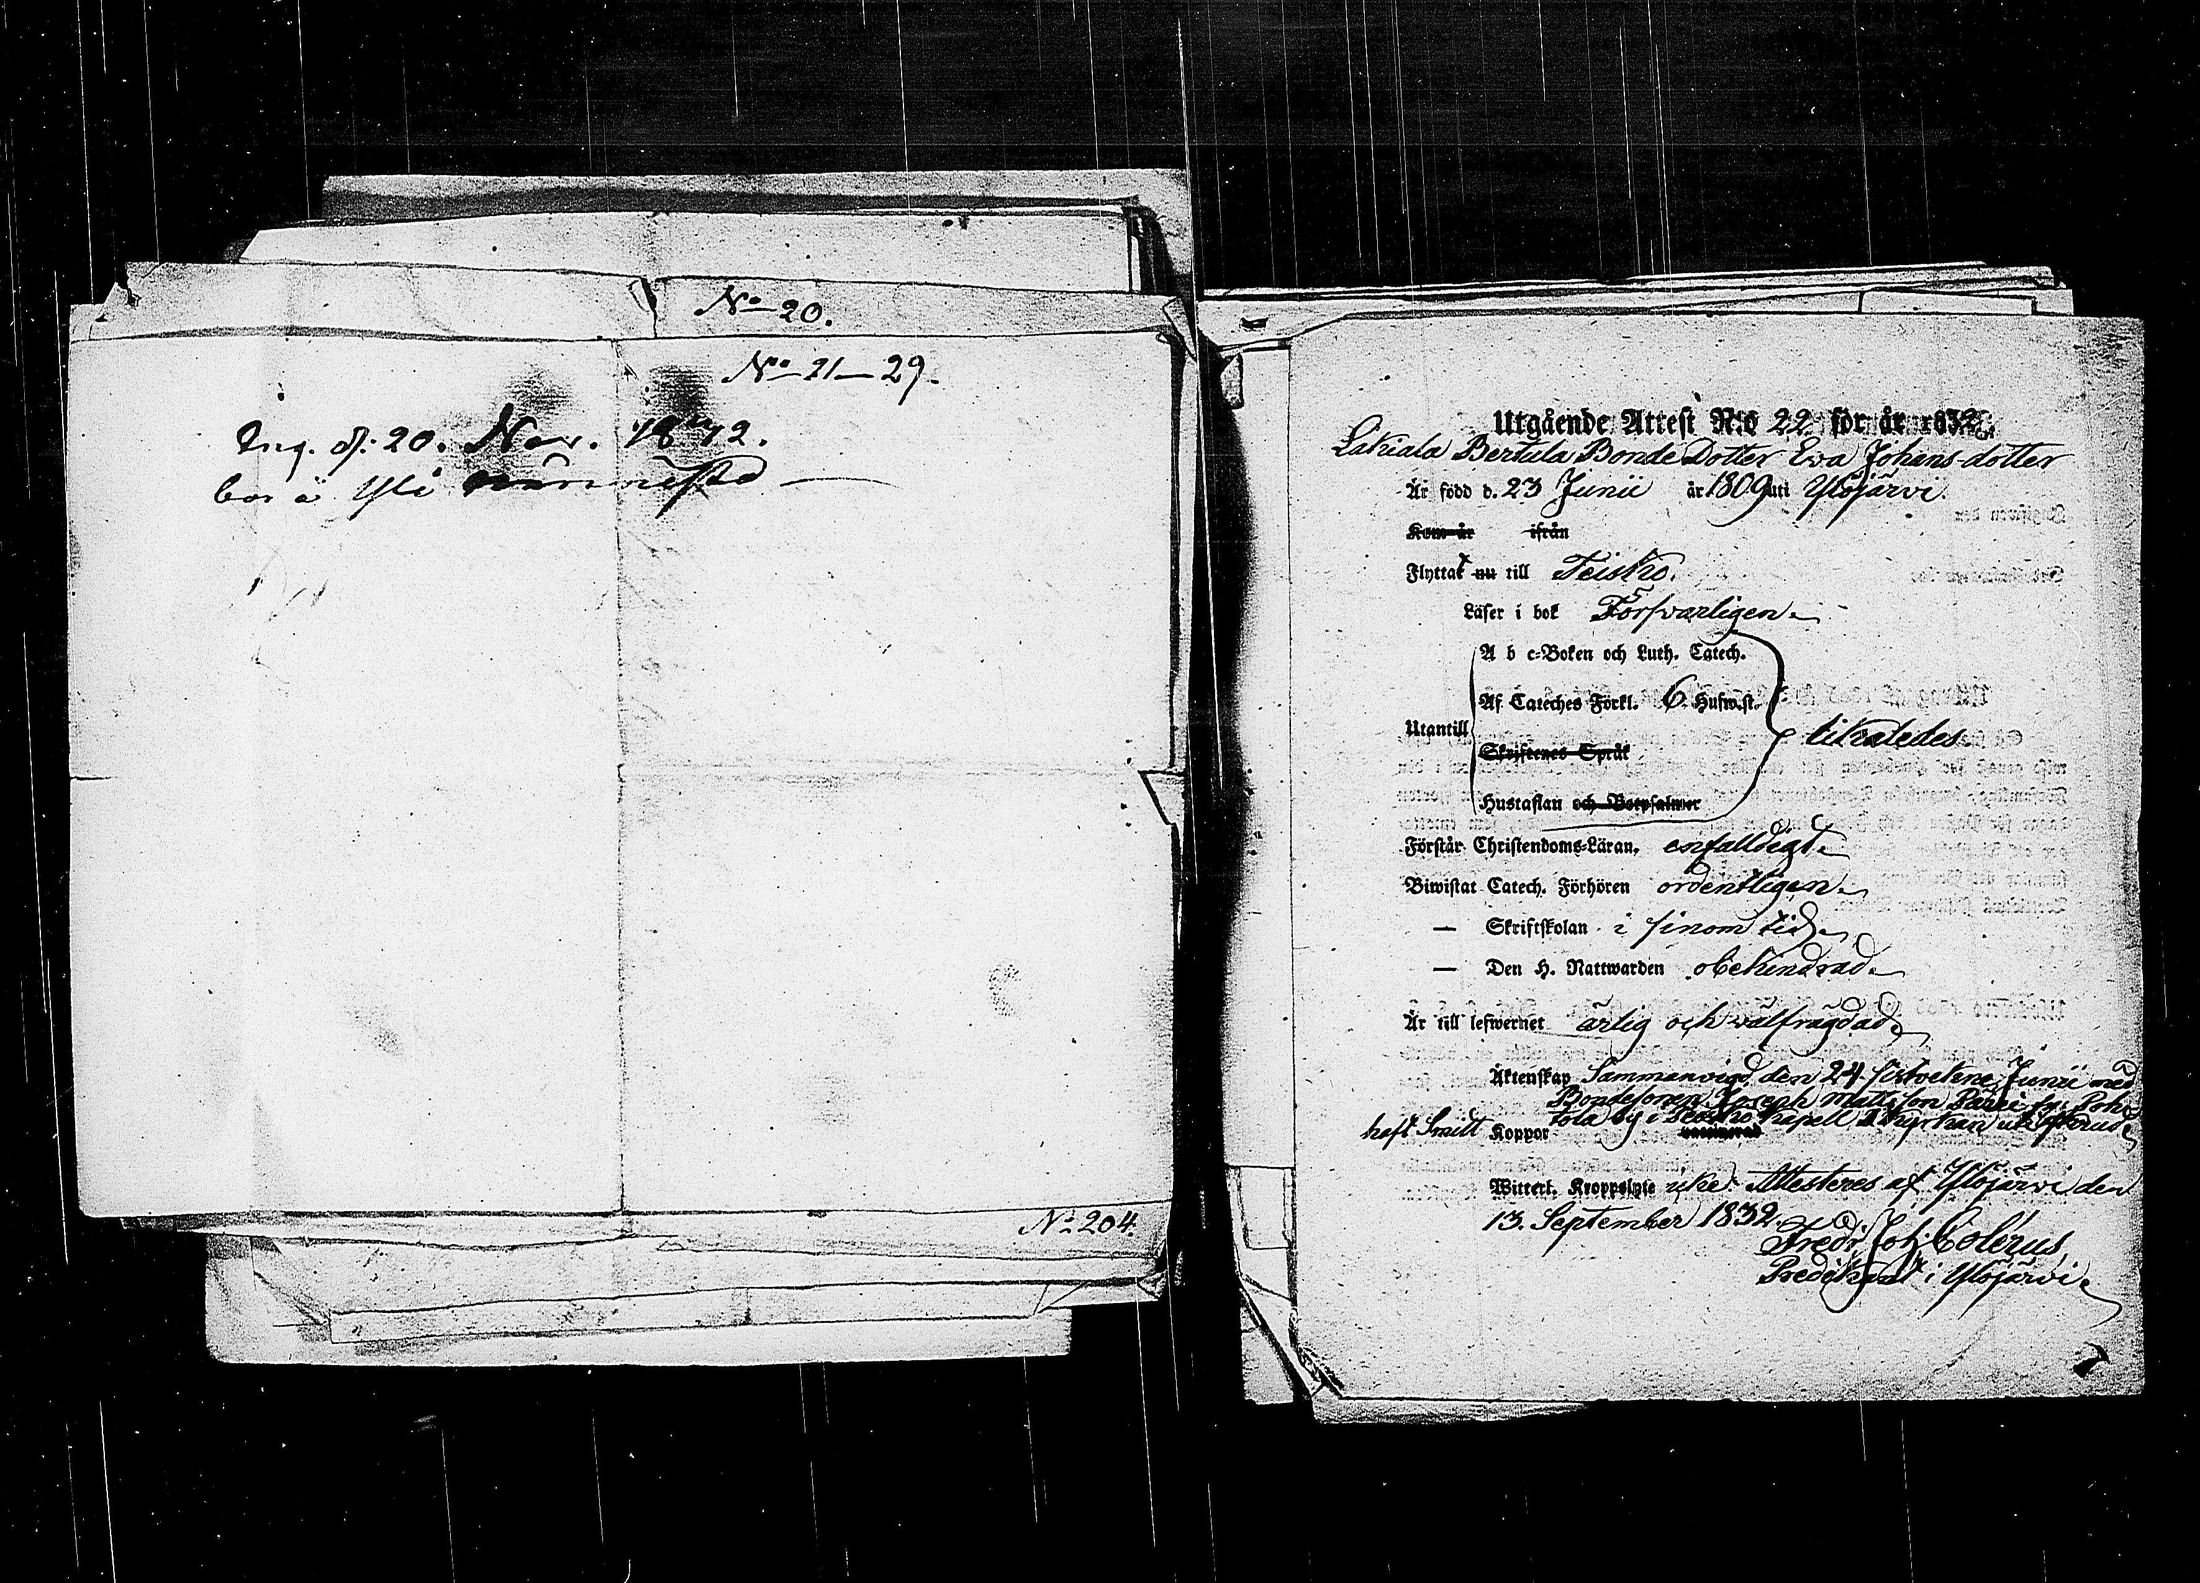 No 20.
No 21-29.
Inq. d. 20. Nov. 1842.
bor å Yli
No 204.
Utgående Attest N:o 22 för år 1832.
Lakiala Bertula Bonde Dotter Eva Johans dotter
Är född d. 23 Junii år 1809 uti Ylöjärvi.
Kom år ifrån
Flyttat nu till Teisko.
Läser i bok Försvarligen.
A b c-Boken och Luth. Catech.
Af Cateches Förkl. 6. Husw.st.
Utantill likaledes.
Skriftenes Språk
Hustaflan och Botpsalmer
Förstår Christendoms-Läran, enfalldigt.
Biwistat Catech. Förhören ordentligen.
— Skriftskolan i sinom tid.
— Den H. Nattwarden obehindrad.
Är till lefwernet ärlig och välfrägdad.
Äktenskap Sammanvigd den 24 sistvekne Junii med
Bondesonen Joseph Mattsson fr. Poh-
tola by i Teisko Kapell
haft Smitt Koppor vaccinerad
Witterl. Kroppslyte icke. Attesteres af Ylöjärvi den
13. September 1832.
Fredr. Joh. Colérus,
Predikant i Ylöjärvi.